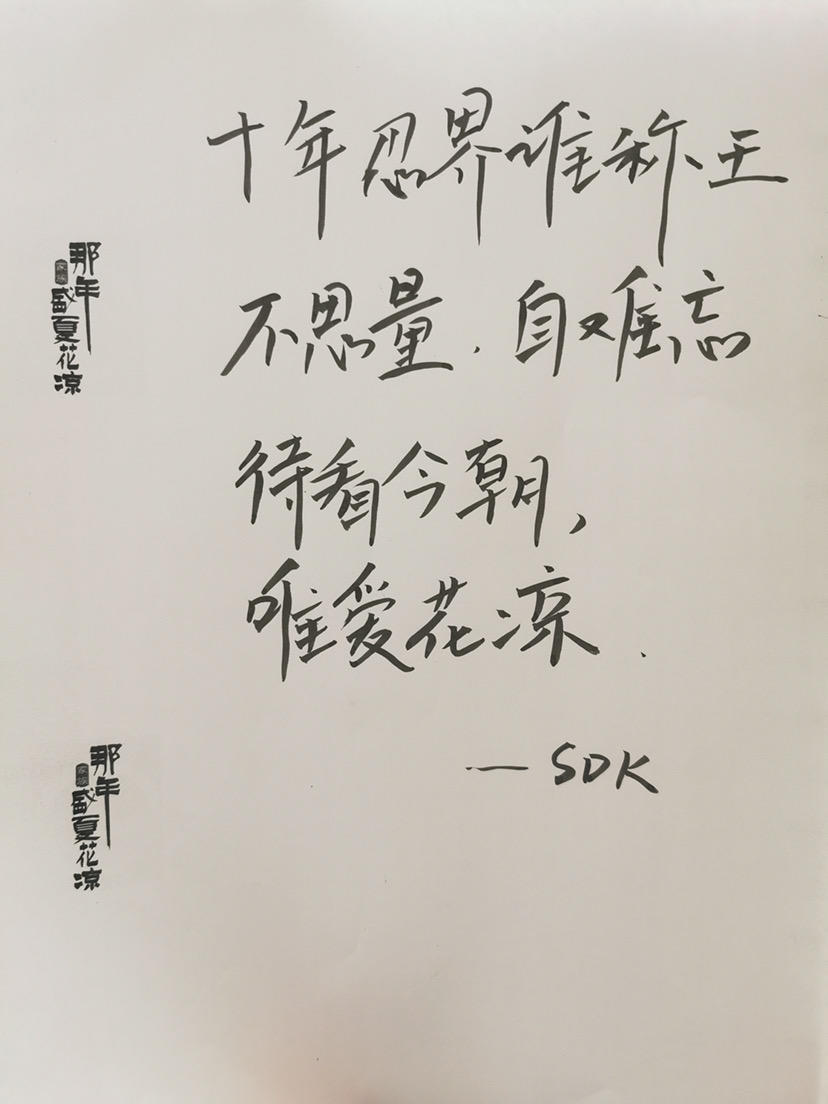 十年忍界谁称王
不思量.自难忘
待看今朝,
唯爱花凉.
—SDK
那年
家族
盛夏花凉
那年
家族
盛夏花凉